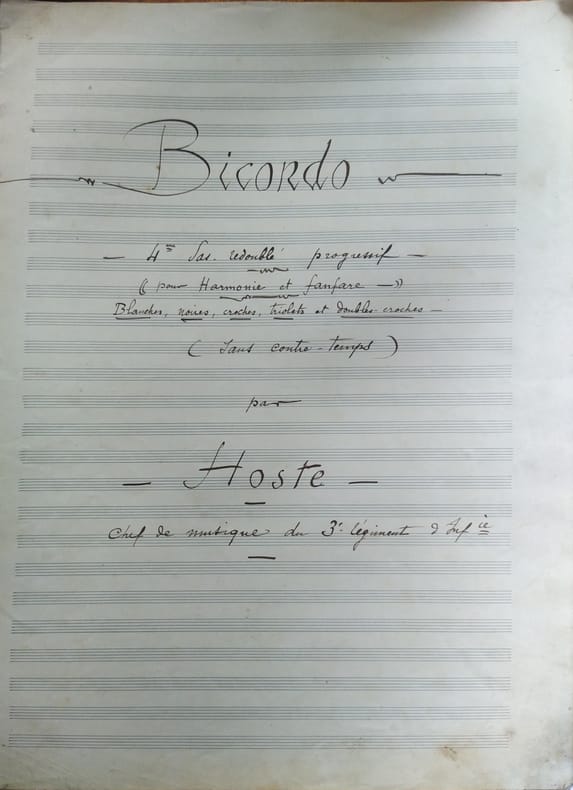 Bicordo
— 4me Pas redoublé progressif —
« pour Harmonie et fanfare — »
Blanches, noires, croches, triolets et doubles-croches —
( Sans contre-temps )
par
— Hoste —
Chef de musique du 3e régiment d'Infie